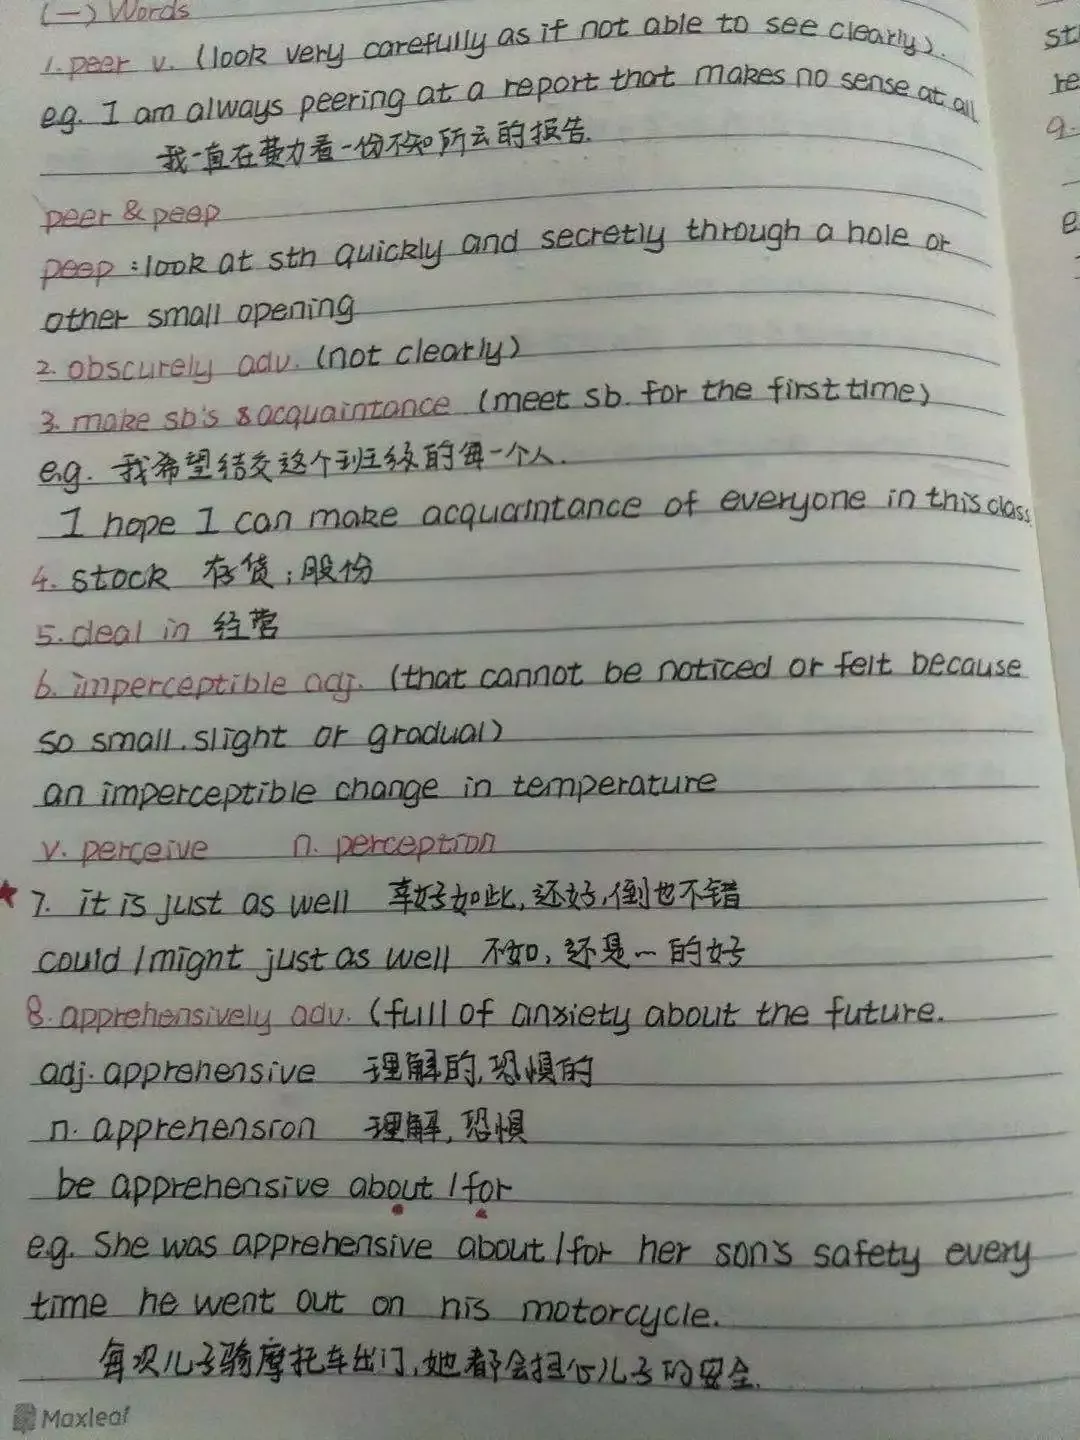 (一) Words
1. peer v. (look very carefully as if not able to see clearly).
eg. I am always peering at a report that makes no sense at all
我一直在费力看一份不知所云的报告.
peer & peep
peep : look at sth quickly and secretly through a hole or
other small opening
2. obscurely adv. (not clearly)
3. make sb's acquaintance (meet sb. for the first time)
e.g. 我希望结交这个班级的每一个人.
I hope I can make acquaintance of everyone in this class.
4. stock 存货；股份
5. deal in 经营
6. imperceptible adj. (that cannot be noticed or felt because
so small. slight or gradual)
an imperceptible change in temperature
v. perceive n. perception
★ 7. it is just as well 幸好如此, 还好, 倒也不错
could / might just as well 不如, 还是一的好
8. apprehensively adv. (full of anxiety about the future.
adj. apprehensive 理解的, 恐惧的
n. apprehension 理解, 恐惧
be apprehensive about / for
e.g. She was apprehensive about / for her son's safety every
time he went out on his motorcycle.
每次儿子骑摩托车出门, 她都会担心儿子的安全.
Maxleaf
st
re
9.
e